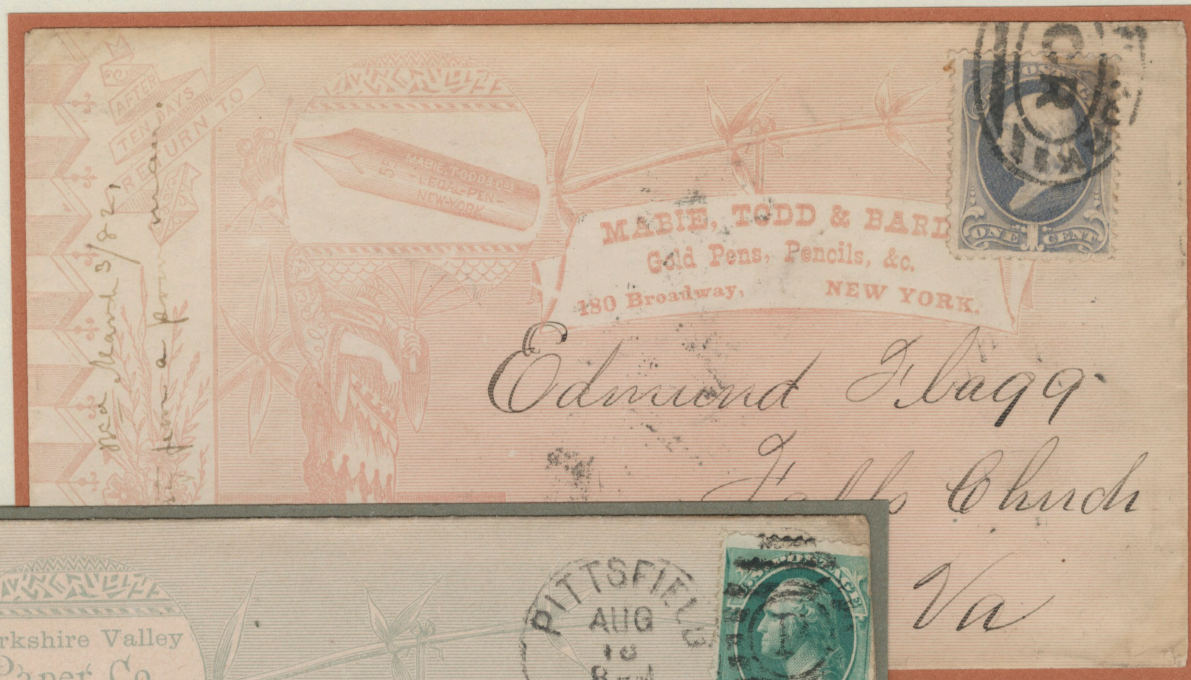 AFTER
TEN DAYS
RETURN TO
MABIE, TODD & CO'S
LEGAL-PEN-
NEW-YORK
MABIE, TODD & BARD
Gold Pens, Pencils, &c.
180 Broadway, NEW YORK.
ONE CENT
Edmund Flagg
Falls Church
Va
March 3/82,
from a
man.
rkshire Valley
Paper Co
PITTSFIELD
AUG
18
8 AM